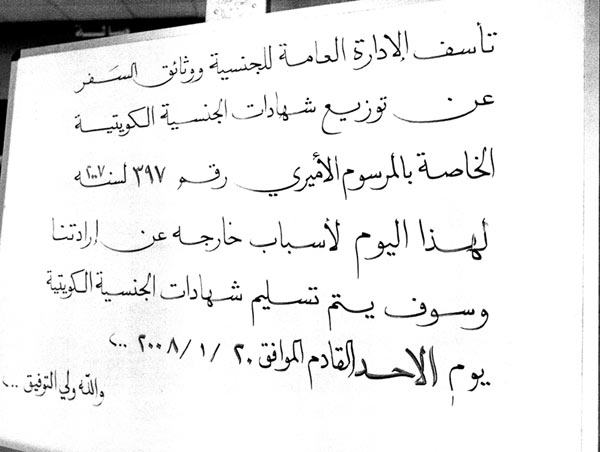 تأسف الإدارة العامة للجنسية ووثائق السَفر
عن توزيع شهادات الجنسية الكويتية
الخاصة بالمرسوم الأميري رقم ٣٩٧ لسنه ٢٠٠٧
لهذا اليوم لأسباب خارجه عن إرادتنا
وسوف يتم تسليم شهادات الجنسية الكويتية
يوم الاحد القادم الموافق ٢٠ / ١ / ٢٠٠٨ ...
والله ولي التوفيق ...